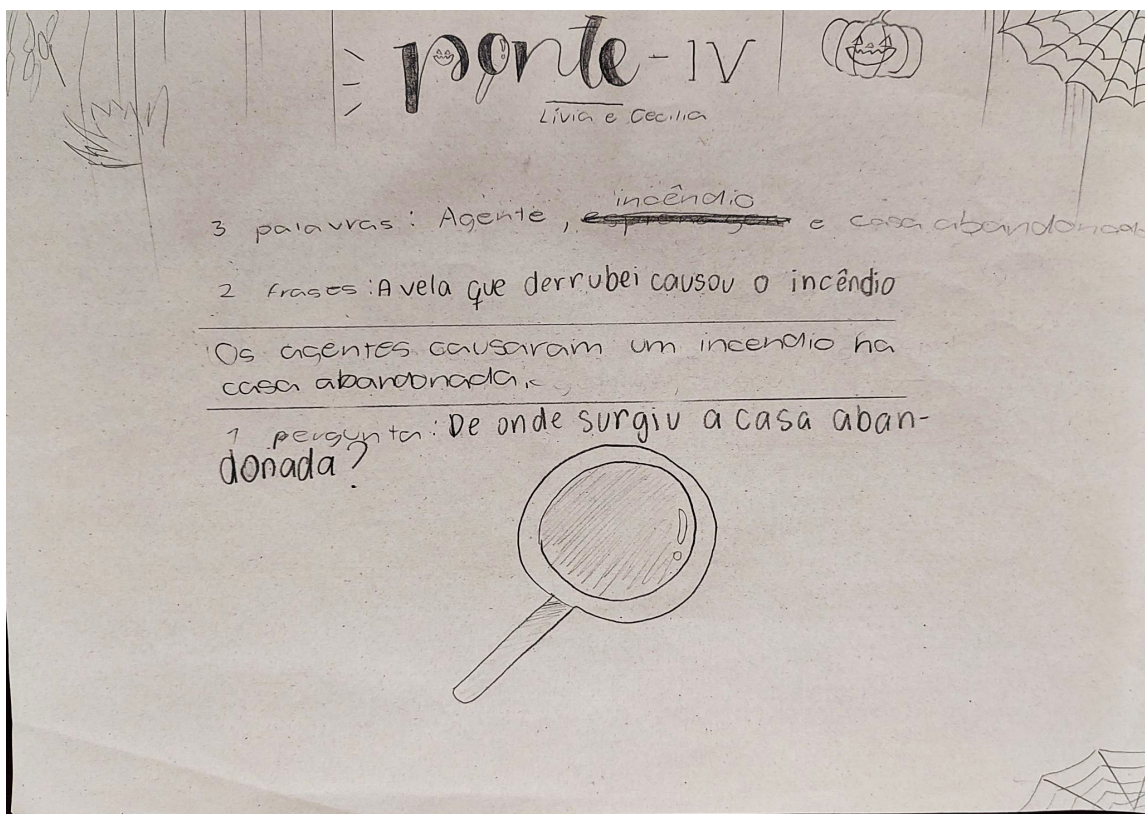 Ponte - IV
Lívia e Cecilia
incêndio
3 palavras: Agente, e casa abandonada
2 frases: A vela que derrubei causou o incêndio
Os agentes causaram um incendio na
casa abandonada.
1 pergunta: De onde surgiu a casa aban-
donada?